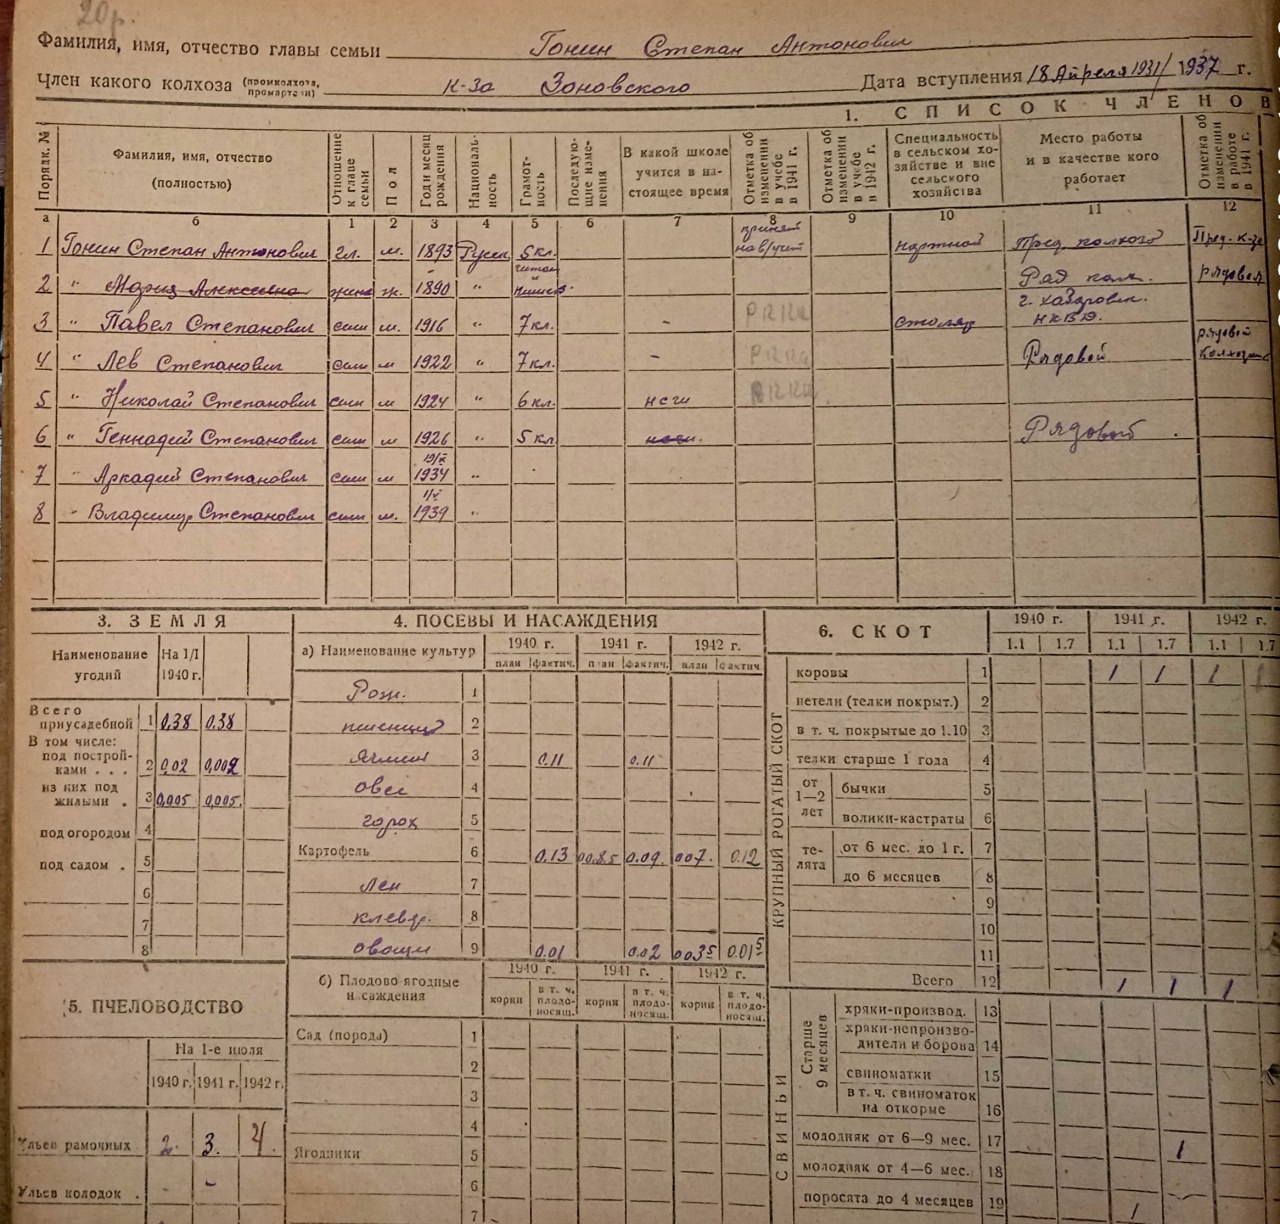 20р.
Фамилия, имя, отчество главы семьи Гонин Степан Антонович
Член какого колхоза (промколхоза, промартели) к-за Зоновского Дата вступления 18 Апреля 1931/1937 г.
1. СПИСОК ЧЛЕНОВ
Порядк. № Фамилия, имя, отчество (полностью) Отношение к главе семьи Пол Год и месяц рождения Националь-ность Грамот-ность Последую-щие изме-нения В какой школе учится в на-стоящее время Отметка об изменении в учебе в 1941 г. Отметка об изменении в учебе в 1942 г. Специальность в сельском хо-зяйстве и вне сельского хозяйства Место работы и в качестве кого работает Отметка об изменении в работе в 1941 г.
а б 1 2 3 4 5 6 7 8 9 10 11 12
1 Гонин Степан Антонович гл. м. 1893 Русск 5 кл. Пред. колхоза Пред. к-за
2 " Мария Алексеевна жена ж. 1890 " Ряд кол. рядовой
3 " Павел Степанович сын м. 1916 " 7 кл. - РККА столяр НКВД.
4 " Лев Степанович сын м 1922 " 7 кл. - РККА Рядовой рядовой колхозник
5 " Николай Степанович сын м 1924 " 6 кл. РККА
6 " Геннадий Степанович сын м 1926 " 5 кл Рядовой
7 " Аркадий Степанович сын м 1934 "
8 " Владимир Степанович сын м. 1939 "
3. ЗЕМЛЯ
Наименование угодий На 1/I 1940 г.
Всего приусадебной 1 0,38 0,38
В том числе:
под построй-ками . . . 2 0,02 0,002
из них под жилыми . 3 0,005 0,005
под огородом 4
под садом . 5
6
7
8
5. ПЧЕЛОВОДСТВО
На 1-е июля
1940 г. 1941 г. 1942 г.
Ульев рамочных 2. 3. 4.
Ульев колодок . - -
4. ПОСЕВЫ И НАСАЖДЕНИЯ
а) Наименование культур 1940 г. 1941 г. 1942 г.
план фактич. план фактич. план фактич
Рож. 1
пшеница 2
Ячмень 3 0.11 0.11
овес 4
горох 5
Картофель 6 0.13 0085 0.09. 007. 0.12
Лен 7
клевер. 8
овощи 9 0.01 0.02 0035 0.015
б) Плодово-ягодные насаждения 1940 г. 1941 г. 1942 г.
корни в т. ч. плодо-носящ. корни в т. ч. плодо-носящ. корни в т. ч. плодо-носящ.
Сад (порода) 1
2
3
4
Ягодники 5
6
7
6. СКОТ 1940 г. 1941 г. 1942 г.
1.1 1.7 1.1 1.7 1.1 1.7
КРУПНЫЙ РОГАТЫЙ СКОТ
коровы 1 1 1 1 1
нетели (телки покрыт.) 2
в т. ч. покрытые до 1.10 3
телки старше 1 года 4
от 1—2 лет бычки 5
волики-кастраты 6
те-лята от 6 мес. до 1 г. 7
до 6 месяцев 8
9
10
11
Всего 12 1 1 1
СВИНЬИ
Старше 9 месяцев хряки-производ. 13
хряки-непроизво-дители и борова 14
свиноматки 15
в т. ч. свиноматок на откорме 16
молодняк от 6—9 мес. 17 1
молодняк от 4—6 мес. 18
поросята до 4 месяцев 19 1